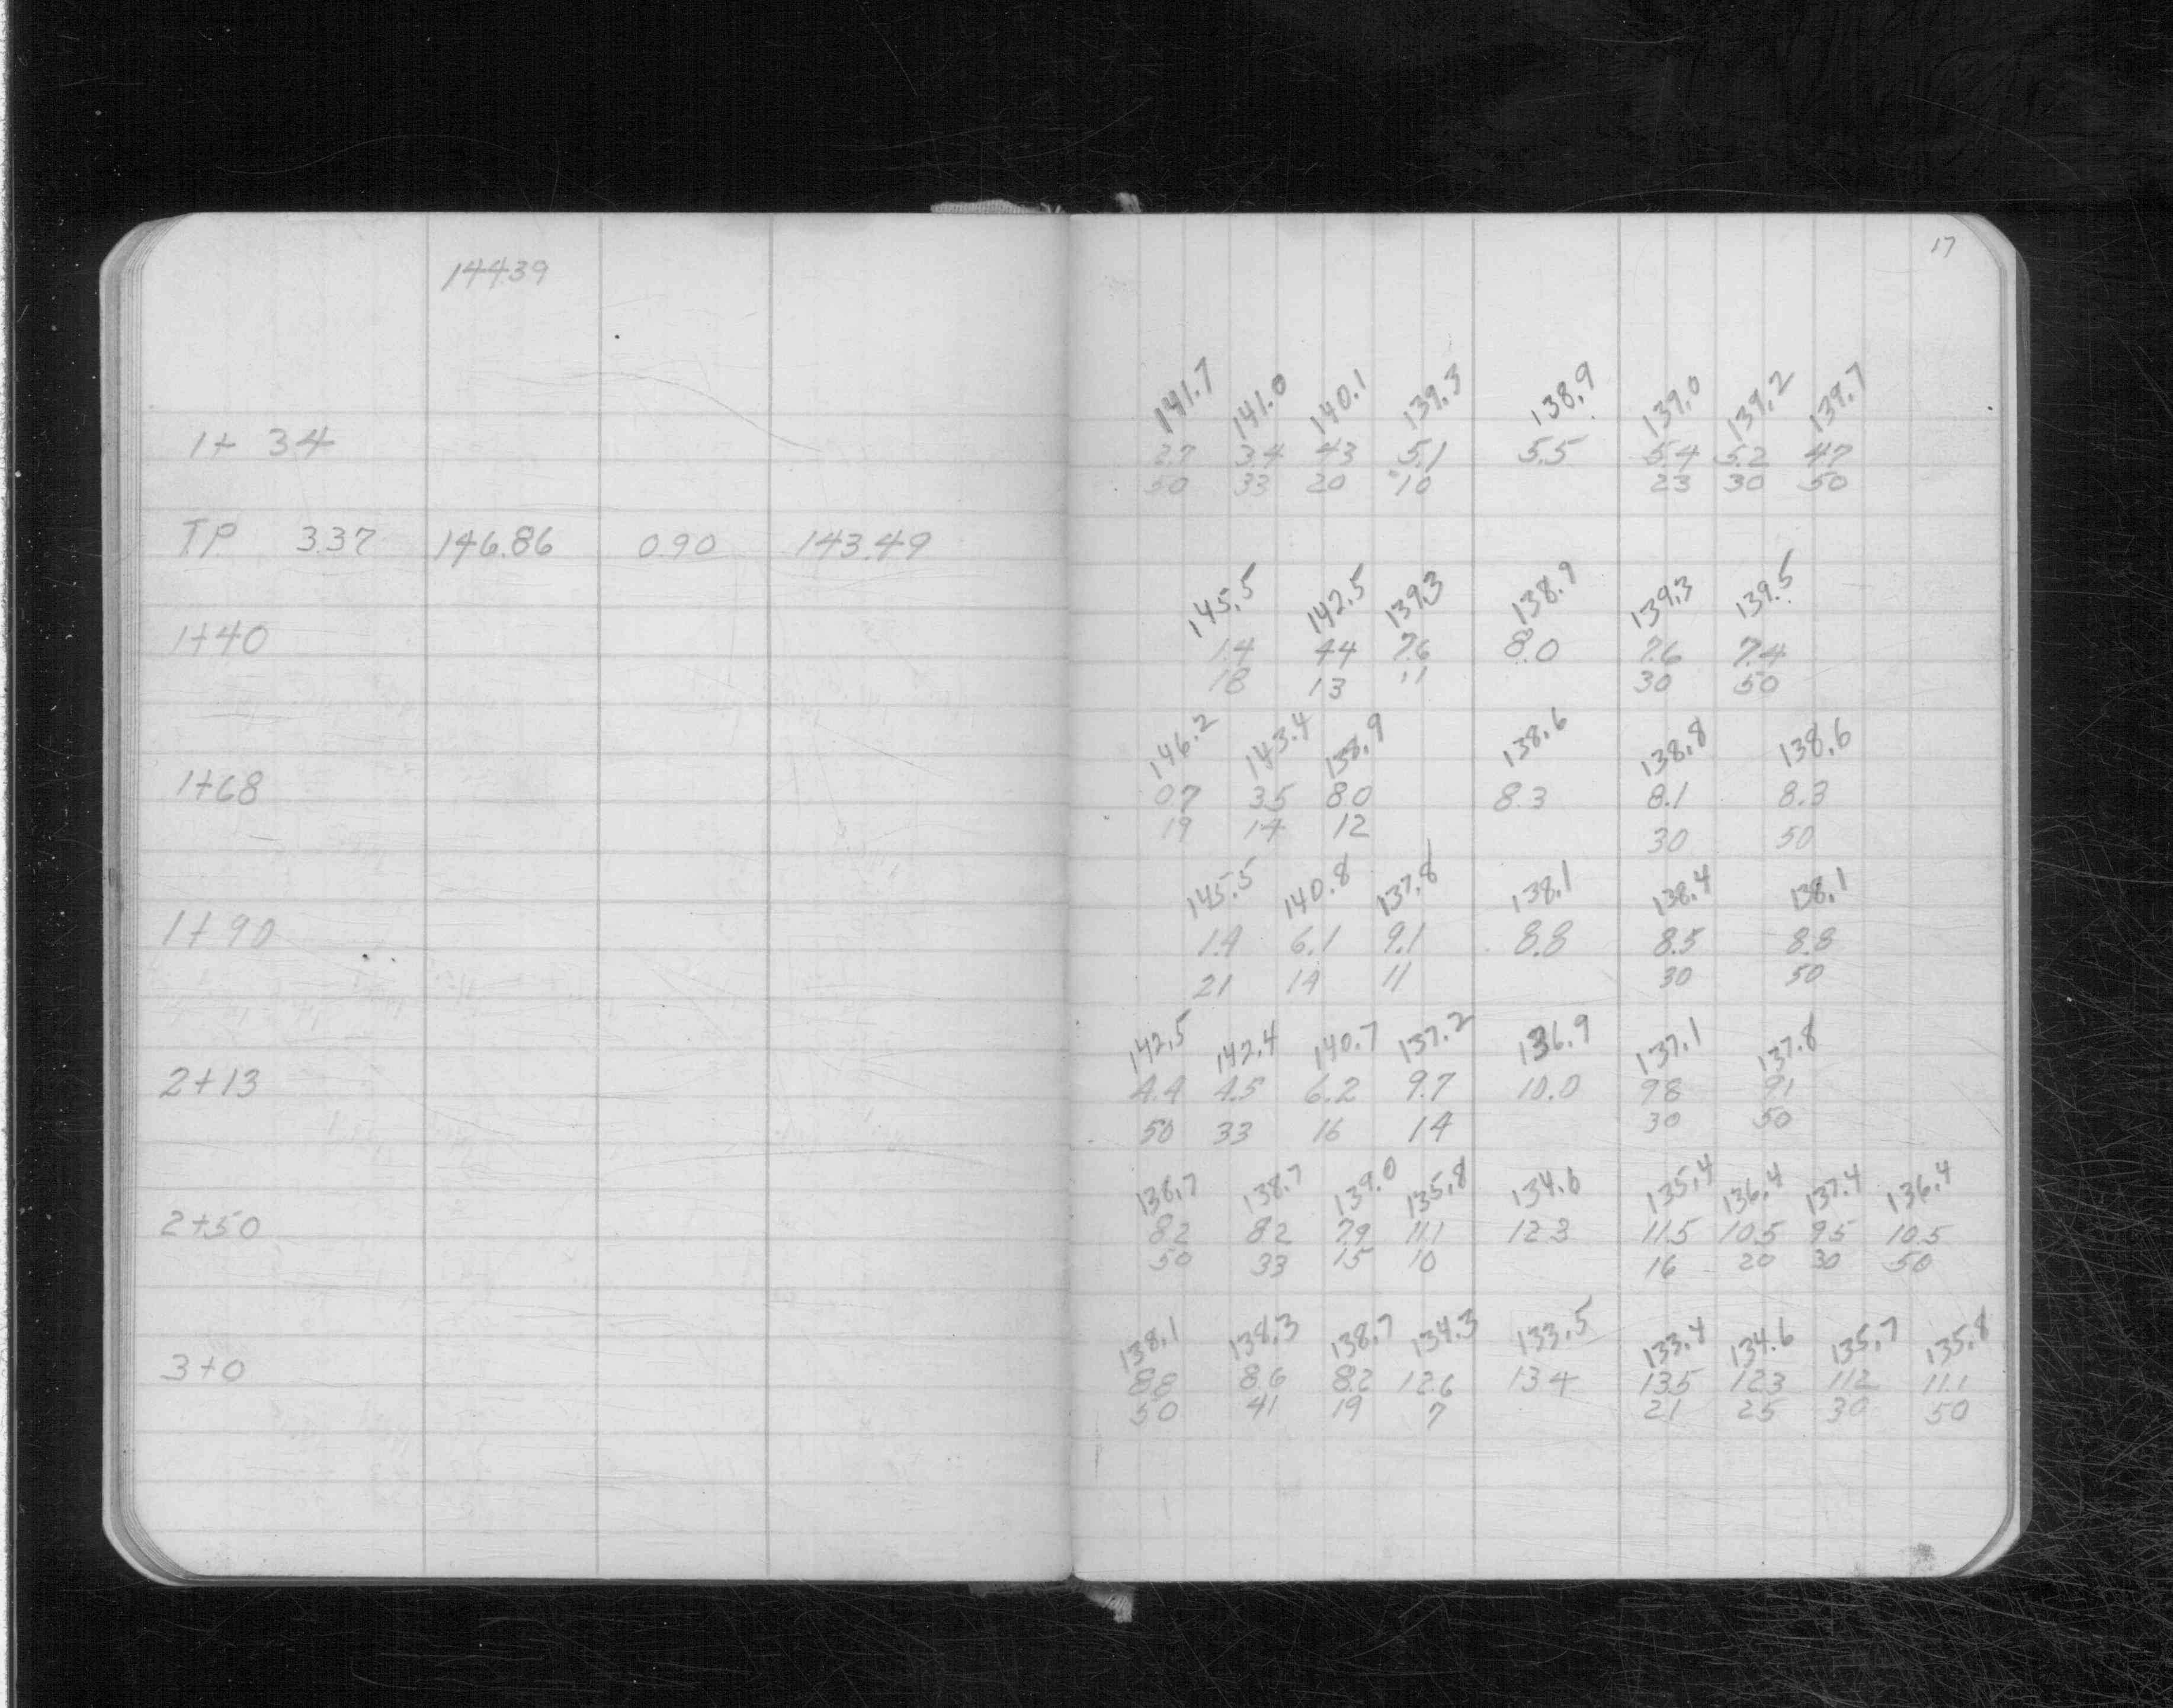 17
144.39
141.7 141.0 140.1 139.3 138.9 139.0 139.2 139.7
1+ 34 2.7 3.4 4.3 5.1 5.5 5.4 5.2 4.7
50 33 20 10 23 30 50
TP 3.37 146.86 0.90 143.49
145.5 142.5 139.3 138.9 139.3 139.5
1+40 1.4 4.4 7.6 8.0 7.6 7.4
18 13 11 30 50
146.2 143.4 138.9 138.6 138.8 138.6
1+68 0.7 3.5 8.0 8.3 8.1 8.3
19 14 12 30 50
145.5 140.8 137.8 138.1 138.4 138.1
1+90 1.4 6.1 9.1 8.8 8.5 8.8
21 14 11 30 50
142.5 142.4 140.7 137.2 136.9 137.1 137.8
2+13 4.4 4.5 6.2 9.7 10.0 9.8 9.1
50 33 16 14 30 50
138.7 138.7 139.0 135.8 134.6 135.4 136.4 137.4 136.4
2+50 8.2 8.2 7.9 11.1 12.3 11.5 10.5 9.5 10.5
50 33 15 10 16 20 30 50
138.1 138.3 138.7 134.3 133.5 133.4 134.6 135.7 135.8
3+0 8.8 8.6 8.2 12.6 13.4 13.5 12.3 11.2 11.1
50 41 19 7 21 25 30 50